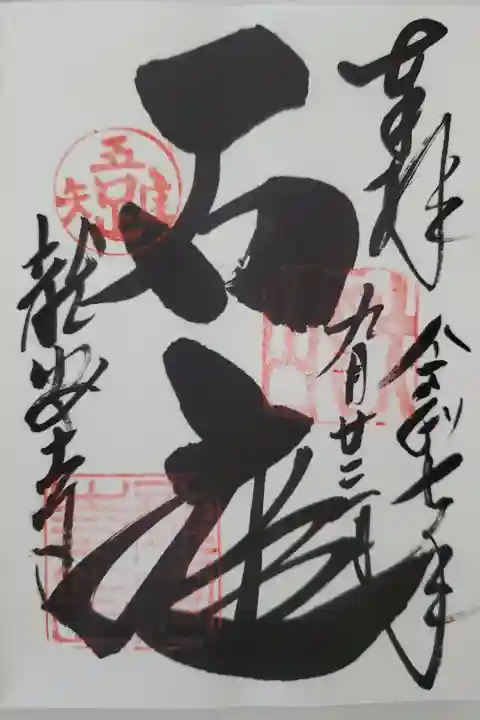 奉拝
令和七年
九月廿二日
石庭
龍安寺
吾唯足知